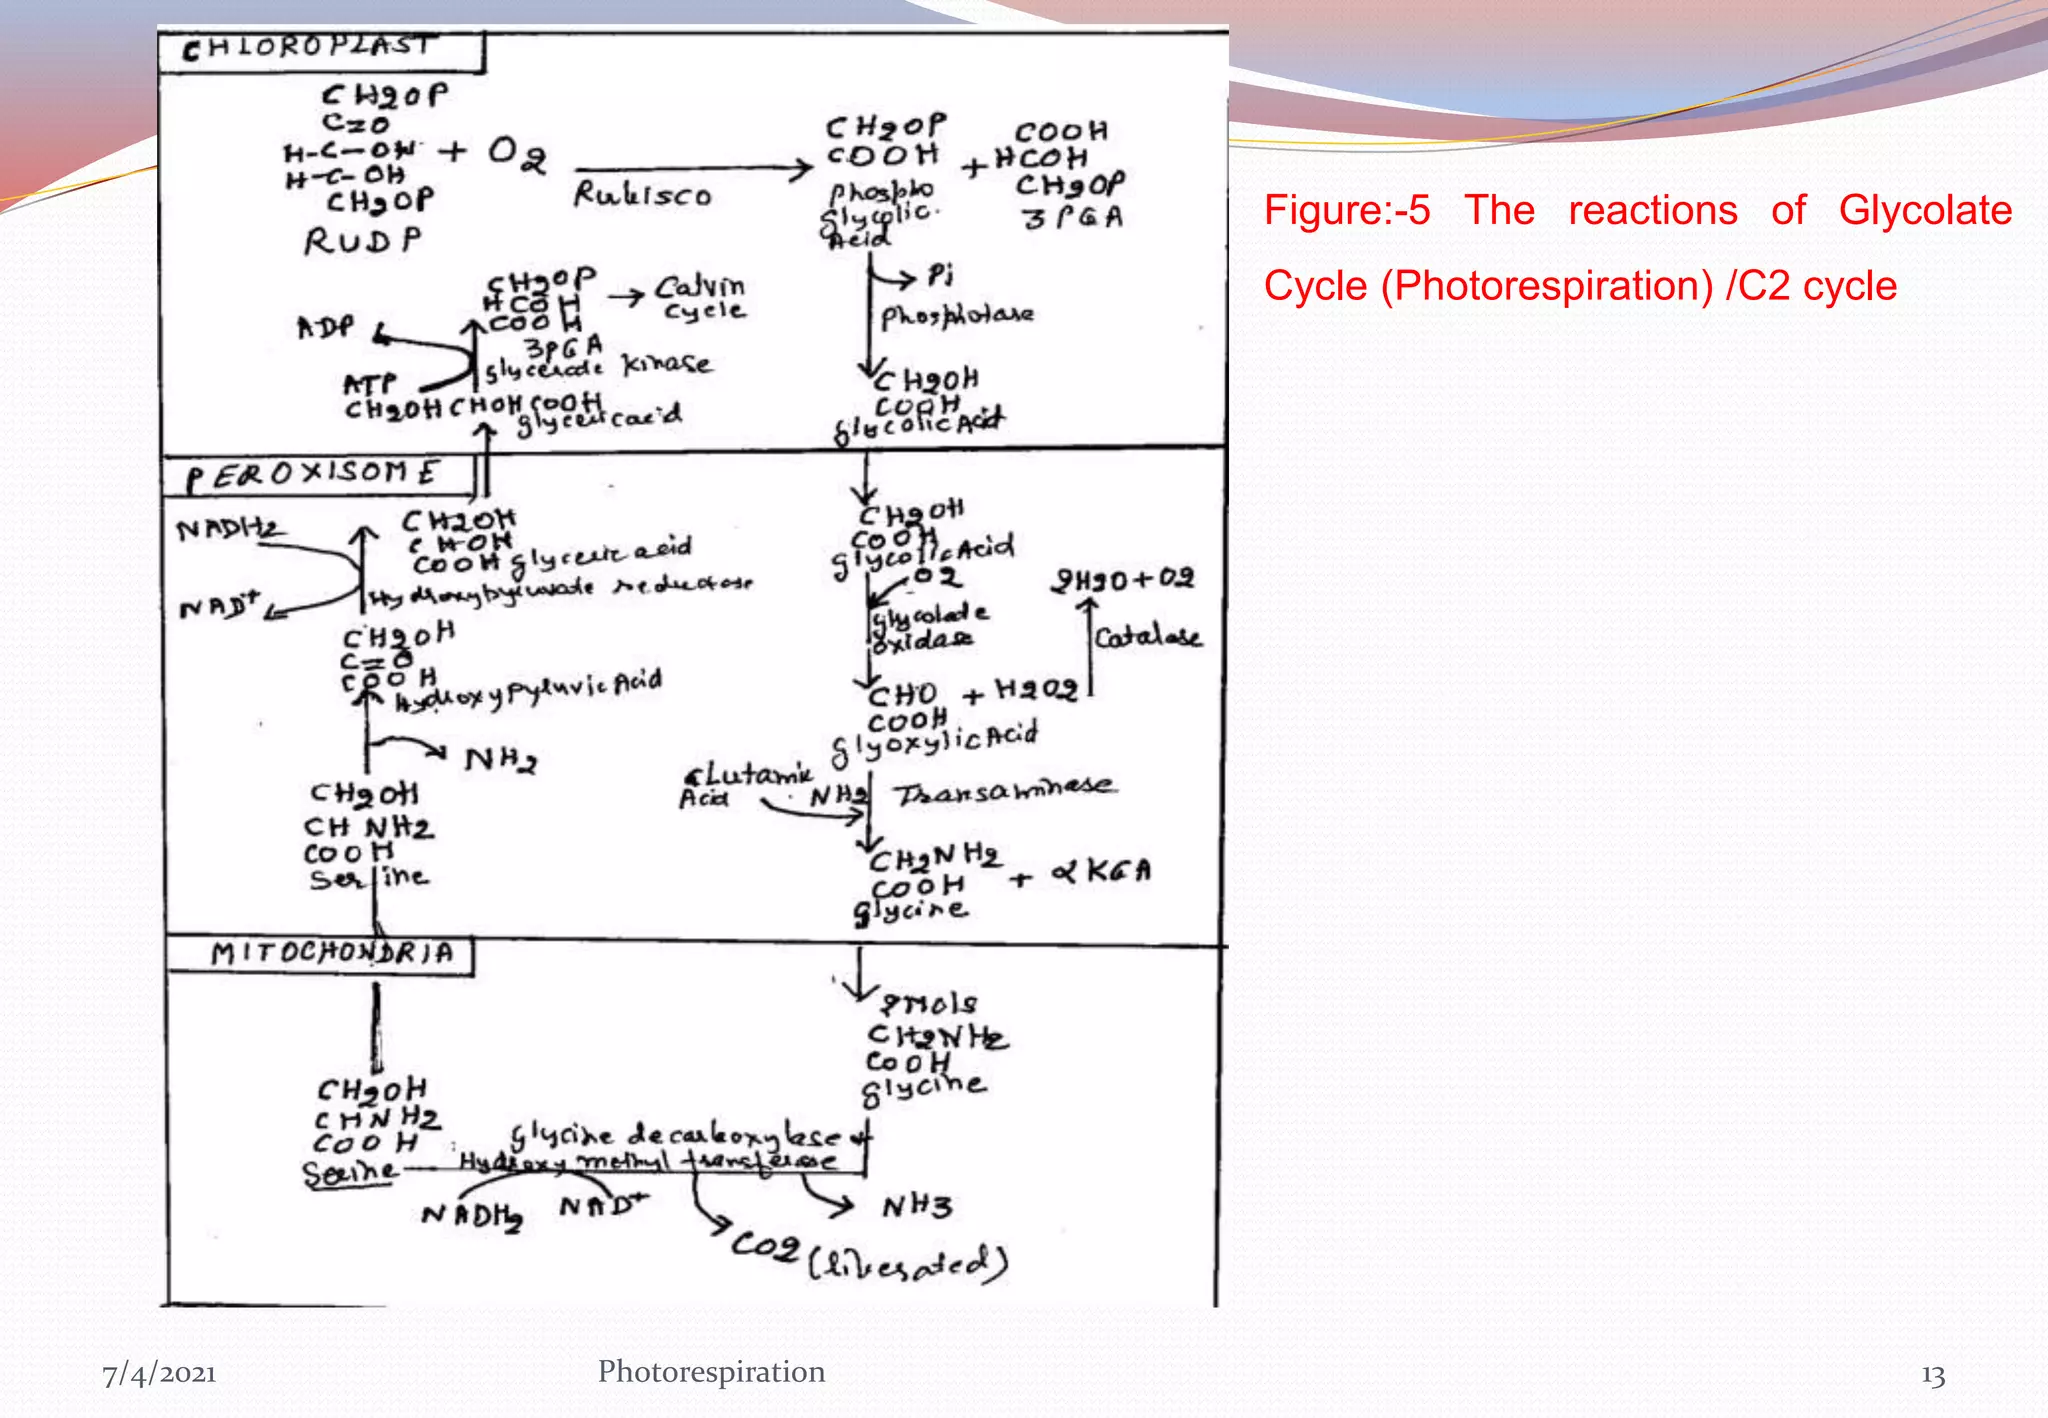 CHLOROPLAST
CH2OP
C=O
H-C-OH + O2
H-C-OH
CH2OP
RUDP
Rubisco
CH2OP
COOH
Phospho
Glycolic
Acid
+
COOH
HCOH
CH2OP
3 PGA
CH2OP
HCOH
COOH
3PGA
→ Calvin
cycle
ADP
ATP
glycerate kinase
CH2OH CHOH COOH
glyceric acid
Pi
Phosphatase
CH2OH
COOH
glycolic Acid
PEROXISOME
NADH2
NAD+
CH2OH
CHOH
COOH glyceric acid
Hydroxypyruvate reductase
CH2OH
C=O
COOH
Hydroxy Pyruvic Acid
NH2
CH2OH
CH NH2
COOH
Serine
CH2OH
COOH
glycolic Acid
O2
glycolate
oxidase
2H2O + O2
Catalase
CHO + H2O2
COOH
Glyoxylic Acid
Glutamic
Acid
NH2
Transaminase
CH2NH2
COOH
glycine
+ αKGA
MITOCHONDRIA
2Mols
CH2NH2
COOH
glycine
CH2OH
CHNH2
COOH
Serine
glycine decarboxylase +
Hydroxy methyl transferase
NADH2
NAD+
NH3
CO2 (liberated)
Figure:-5 The reactions of Glycolate
Cycle (Photorespiration) /C2 cycle
7/4/2021
Photorespiration
13